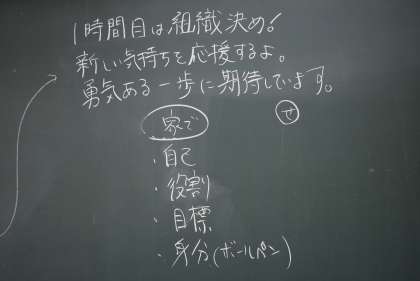 1時間目は組織決め!
新しい気持ちを応援するよ。
勇気ある一歩に期待しています。
家で
せ
・自己
・役割
・目標
・身分(ボールペン)